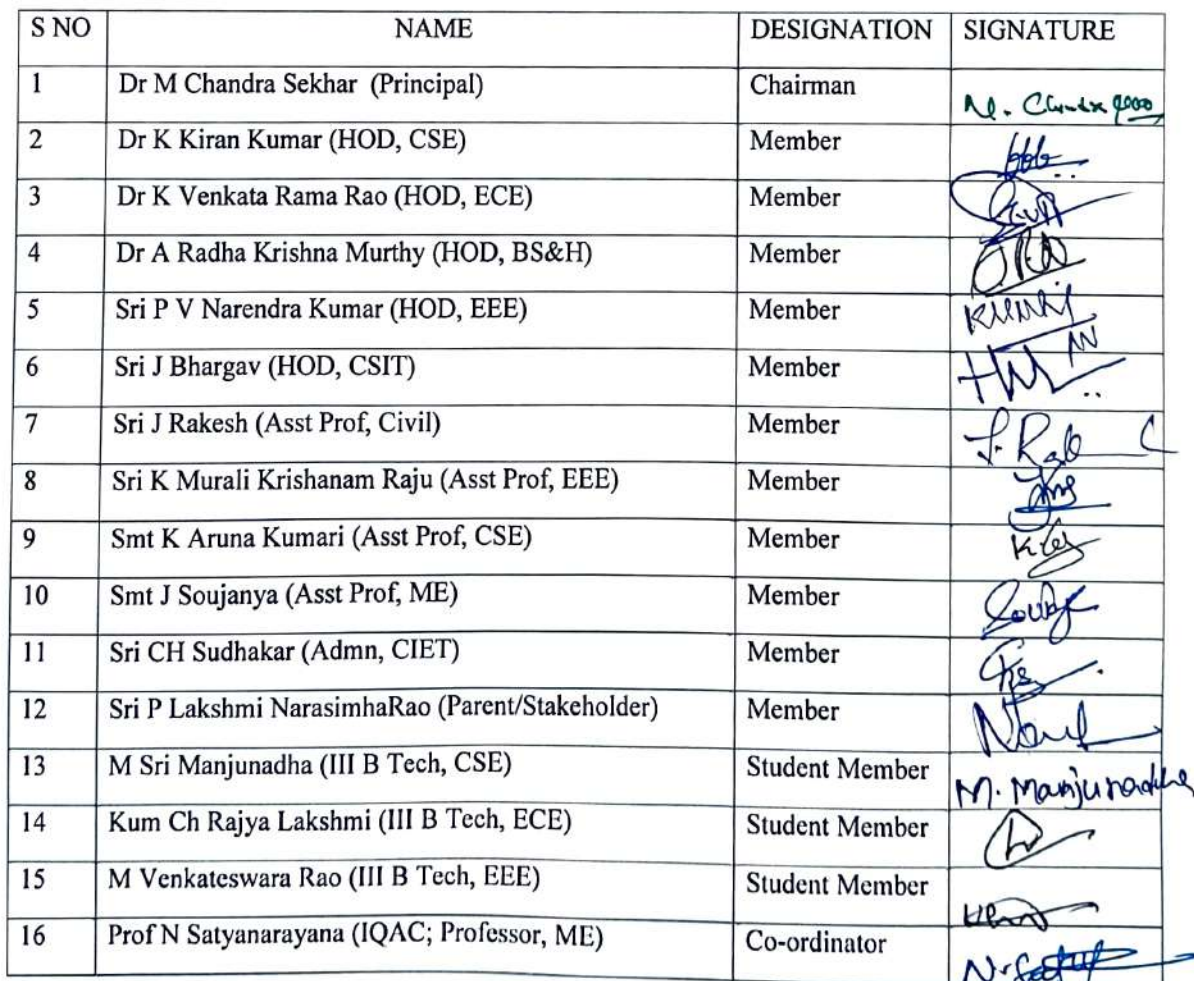 S NO NAME DESIGNATION SIGNATURE
1 Dr M Chandra Sekhar (Principal) Chairman
2 Dr K Kiran Kumar (HOD, CSE) Member
3 Dr K Venkata Rama Rao (HOD, ECE) Member
4 Dr A Radha Krishna Murthy (HOD, BS&H) Member
5 Sri P V Narendra Kumar (HOD, EEE) Member
6 Sri J Bhargav (HOD, CSIT) Member
7 Sri J Rakesh (Asst Prof, Civil) Member
8 Sri K Murali Krishanam Raju (Asst Prof, EEE) Member
9 Smt K Aruna Kumari (Asst Prof, CSE) Member
10 Smt J Soujanya (Asst Prof, ME) Member
11 Sri CH Sudhakar (Admn, CIET) Member
12 Sri P Lakshmi NarasimhaRao (Parent/Stakeholder) Member
13 M Sri Manjunadha (III B Tech, CSE) Student Member M. Manjunadha
14 Kum Ch Rajya Lakshmi (III B Tech, ECE) Student Member
15 M Venkateswara Rao (III B Tech, EEE) Student Member
16 Prof N Satyanarayana (IQAC; Professor, ME) Co-ordinator